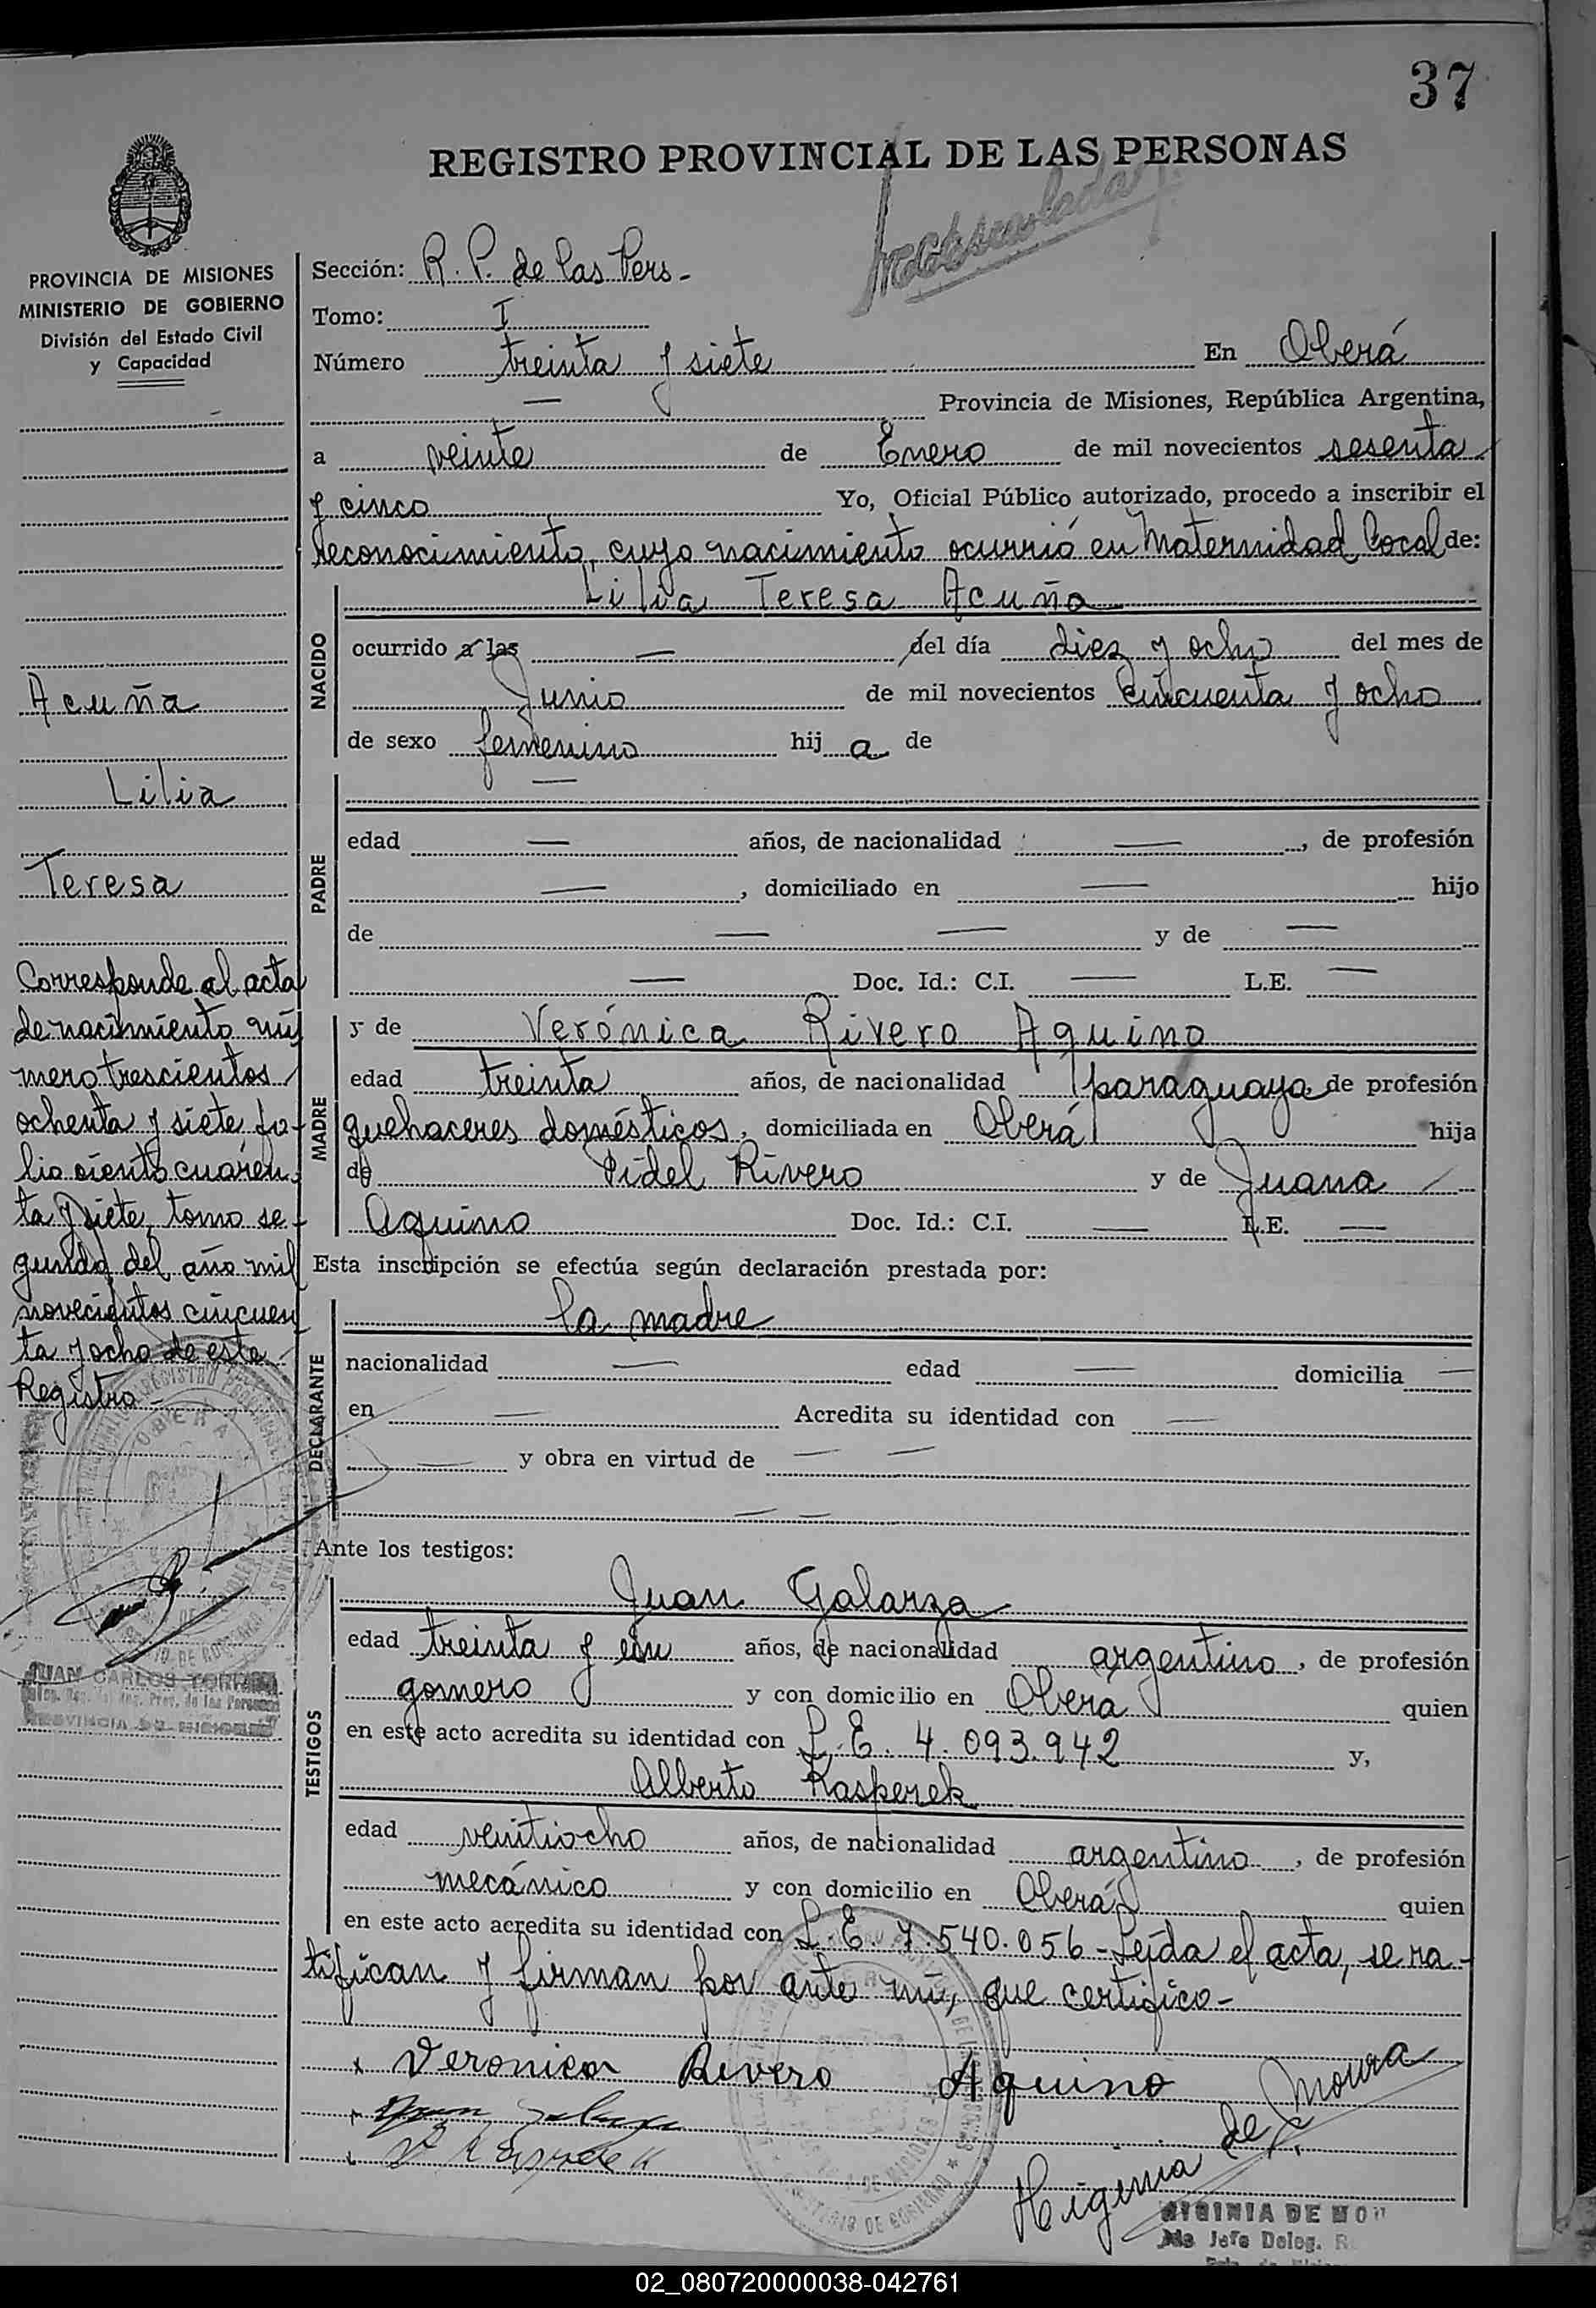 37
REGISTRO PROVINCIAL DE LAS PERSONAS
PROVINCIA DE MISIONES
MINISTERIO DE GOBIERNO
División del Estado Civil
y Capacidad
Acuña
Lilia
Teresa
Corresponde al acta
de nacimiento nú
mero trescientos
ochenta y siete fo-
lio ciento cuaren-
ta y siete, tomo se-
gundo del año mil
novecientos cincuen
ta y ocho de este
Registro-
OBERA
JUAN CARLOS
Sección: R. P. de las Pers-
Tomo: I
Número treinta y siete En Oberá
— Provincia de Misiones, República Argentina,
a veinte de Enero de mil novecientos sesenta
y cinco Yo, Oficial Público autorizado, procedo a inscribir el
reconocimiento, cuyo nacimiento ocurrió en Maternidad Local de:
NACIDO
Lilia Teresa Acuña
ocurrido a las — del día diez y ocho del mes de
Junio de mil novecientos cincuenta y ocho
de sexo femenino hij a de
PADRE
—
edad — años, de nacionalidad —, de profesión
—, domiciliado en — hijo
de — — y de —
— Doc. Id.: C.I. — L.E. —
MADRE
y de Verónica Rivero Aquino
edad treinta años, de nacionalidad paraguaya de profesión
quehaceres domésticos, domiciliada en Oberá hija
de Fidel Rivero y de Juana
Aquino Doc. Id.: C.I. — L.E. —
Esta inscripción se efectúa según declaración prestada por:
DECLARANTE
la madre
nacionalidad — edad — domicilia —
en — Acredita su identidad con —
— y obra en virtud de — —
— —
Ante los testigos:
TESTIGOS
Juan Galarza
edad treinta y un años, de nacionalidad argentino, de profesión
gomero y con domicilio en Oberá quien
en este acto acredita su identidad con L.E. 4.093.942 y,
Alberto Kasperek
edad veintiocho años, de nacionalidad argentino, de profesión
mecánico y con domicilio en Oberá quien
en este acto acredita su identidad con L.E. 7.540.056 - Leída el acta, se ra-
tifican y firman por ante mí, que certifico-
x Veronica Rivero Aquino
Higinia de Moura
HIGINIA DE MOU
Jefe Deleg. R
02_080720000038-042761